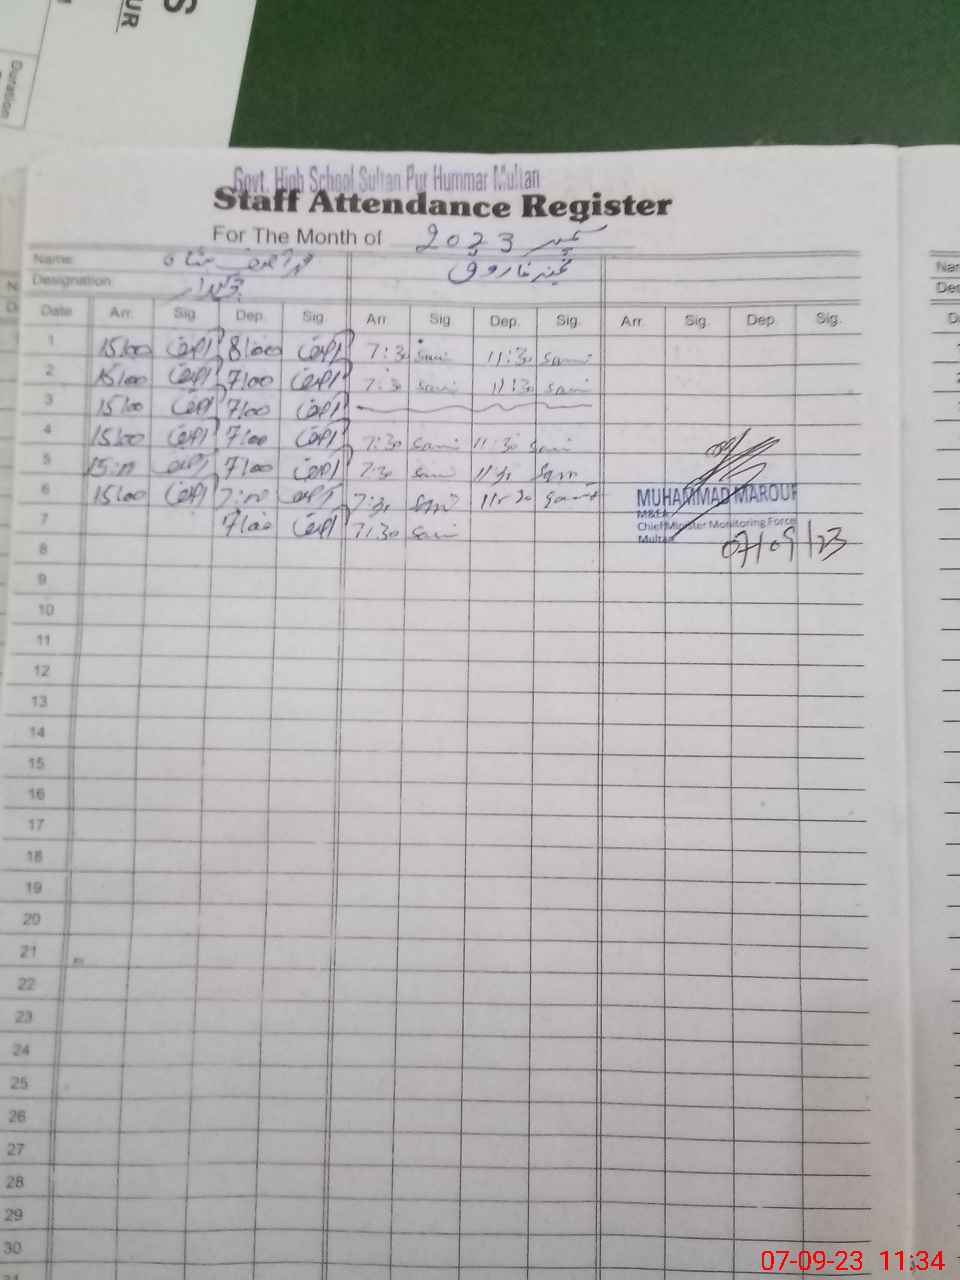 S
UR
Duration
Govt. High School Sultan Pur Hummar Multan
Staff Attendance Register
For The Month of ستمبر 2023
Name:
Designation: چوکیدار
Date Arr. Sig. Dep. Sig. Arr. Sig. Dep. Sig. Arr. Sig. Dep. Sig.
1 15/00 آصف 8/00 آصف 7:30 Sami 11:30 Sami
2 15/00 آصف 7/00 آصف 7:30 Sami 11:30 Sami
3 15/00 آصف 7/00 آصف
4 15/00 آصف 7/00 آصف 7:30 Sami 11:30 Sami
5 آصف 7/00 آصف 7:30 Sami 11:30 Sami
6 15/00 آصف آصف 7:30 Sami 11:30 Sami
7 7/00 آصف 7:30 Sami
MUHAMMAD MAROUF
M&EA
Chief Minister Monitoring Force
Multan
07/09/23
8
9
10
11
12
13
14
15
16
17
18
19
20
21
22
23
24
25
26
27
28
29
30
07-09-23 11:34